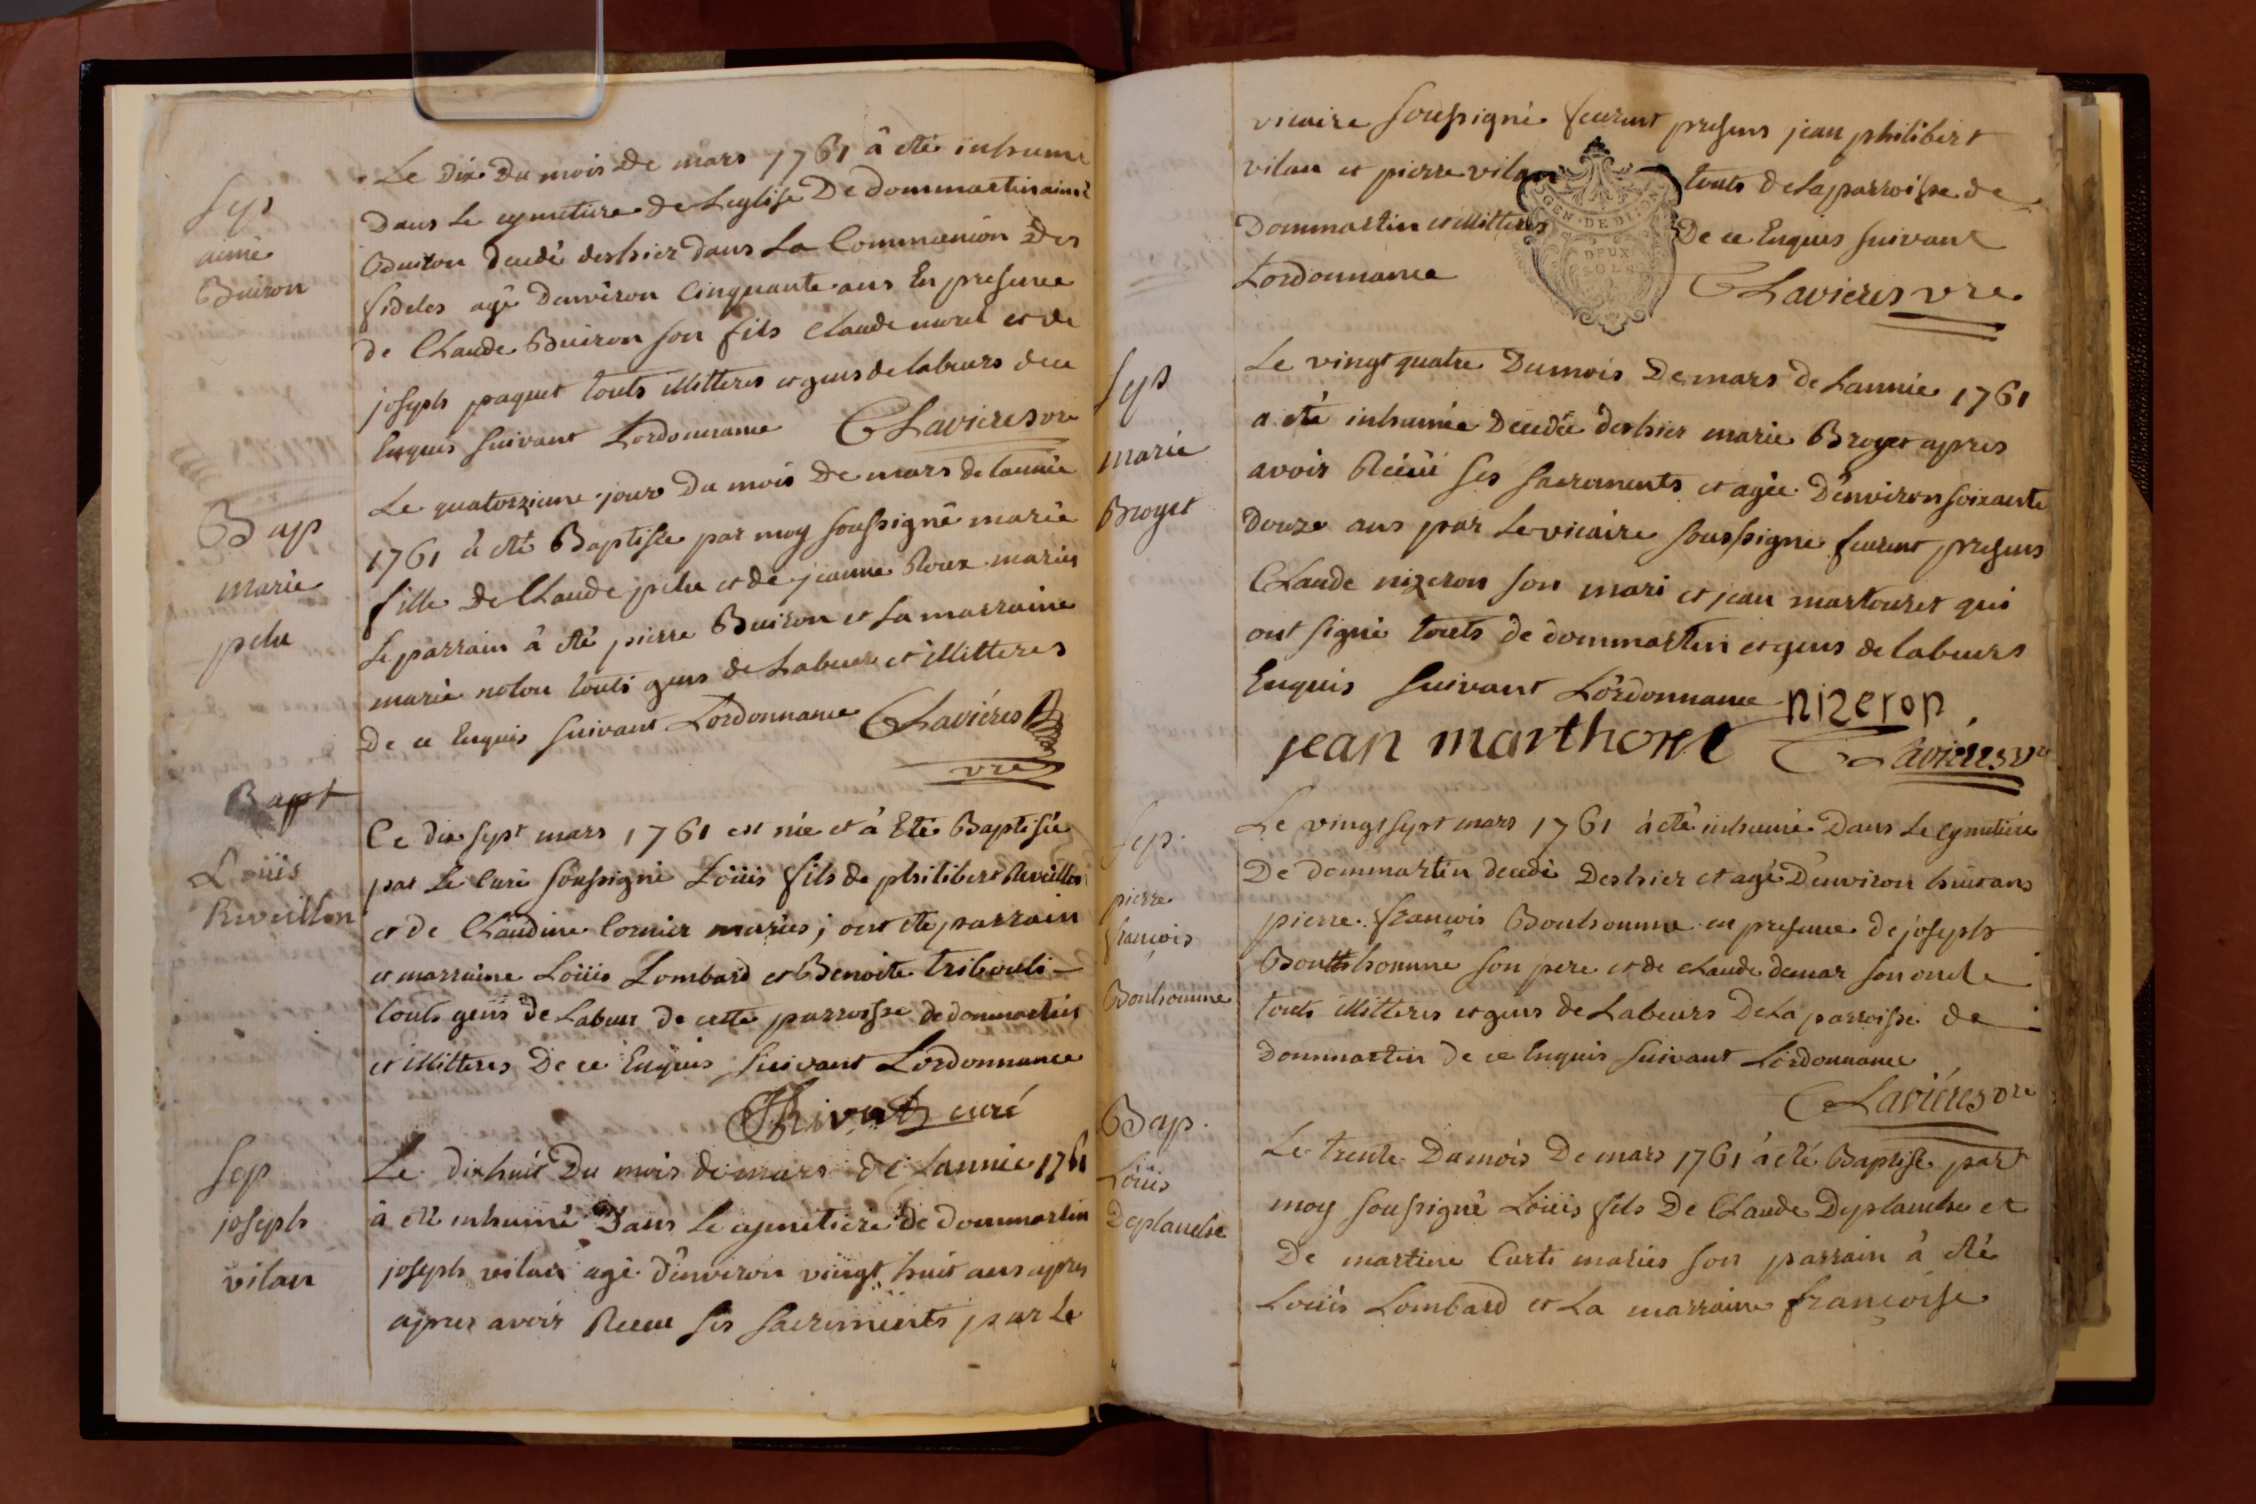 Sep
aimé
Buiron
Le Dix Du mois De mars 1761 à eté inhumé
Dans Le cymetiere de Leglise De dommartin aimé
Buiron decedé deshier dans La Communion Des
fideles agé denviron Cinquante ans En presence
de Claude Buiron son fils claude morel et de
joseph paquet touts illitteres et gens de labeurs de ce
Enquis suivant Lordonnance CLavieres vre
Bap
marie
pelu
Le quatorzieme jour Du mois De mars de lannée
1761 à eté Baptisée par moy soussigné marie
fille De Claude pelu et de jeanne Roux mariés
Le parrain à eté pierre Buiron et La marraine
marie notou touts gens de Labeur et illitteres
De ce Enquis suivant Lordonnance CLaviéres
vre
Bapt
Loüis
Reveillon
Ce dix sept mars 1761 est née et à Eté Baptisée
par Le Curé soussigné Loüis fils de philibert Reveillon
et de Claudine Cornier mariés; ont ete parrain
et marraine Loüis Lombard et Benoite tribouli
touts gens de Labeur de cette parroisse de dommartin
et illitteres De ce Enquis suivant Lordonnance
Thivat curé
Sep
joseph
vilan
Le dixhuit Du mois de mars de Lannée 1761
à eté inhumé Dans Le cymetiere de dommartin
joseph vilan agé d'environ vingt huit ans apres
apres avoir Receu ses sacrements par Le
vicaire soussigné feurent presens jean philibert
vilan et pierre vilan touts de la parroisse de
Dommartin et illitteres De ce Enquis suivant
Lordonnance CLavieres vre
GEN. DE DIJON
DEUX
SOLS
Sep
marie
Broyet
Le vingt quatre Du mois De mars de Lannée 1761
a eté inhumée Decedée deshier marie Broyet apres
avoir Reçüe ses sacrements et agée D'environ soixante
douze ans par Le vicaire soussigné feurent presens
Claude nizeron son mari et jean martouret qui
ont signé touts de dommartin et gens de labeurs
Enquis suivant Lordonnance nizeron
jean marthoret CLaviéres vre
Sep
pierre
françois
Bonhomme
Le vingt sept mars 1761 à eté inhumé Dans Le cymetiere
De dommartin decedé Deshier et agé D'environ huit ans
pierre françois Bonhomme en presence de joseph
Bonhomme son pere et de claude demar son oncle
touts illitteres et gens de Labeurs De La parroisse de
Dommartin de ce Enquis suivant Lordonnance
CLaviéres vre
Bap
Loüis
Deplanche
Le trente Du mois De mars 1761 à eté Baptisé part
moy soussigné Loüis fils De Claude Deplanche et
De martine Curti mariés son parrain à eté
Loüis Lombard et La marraine françoise